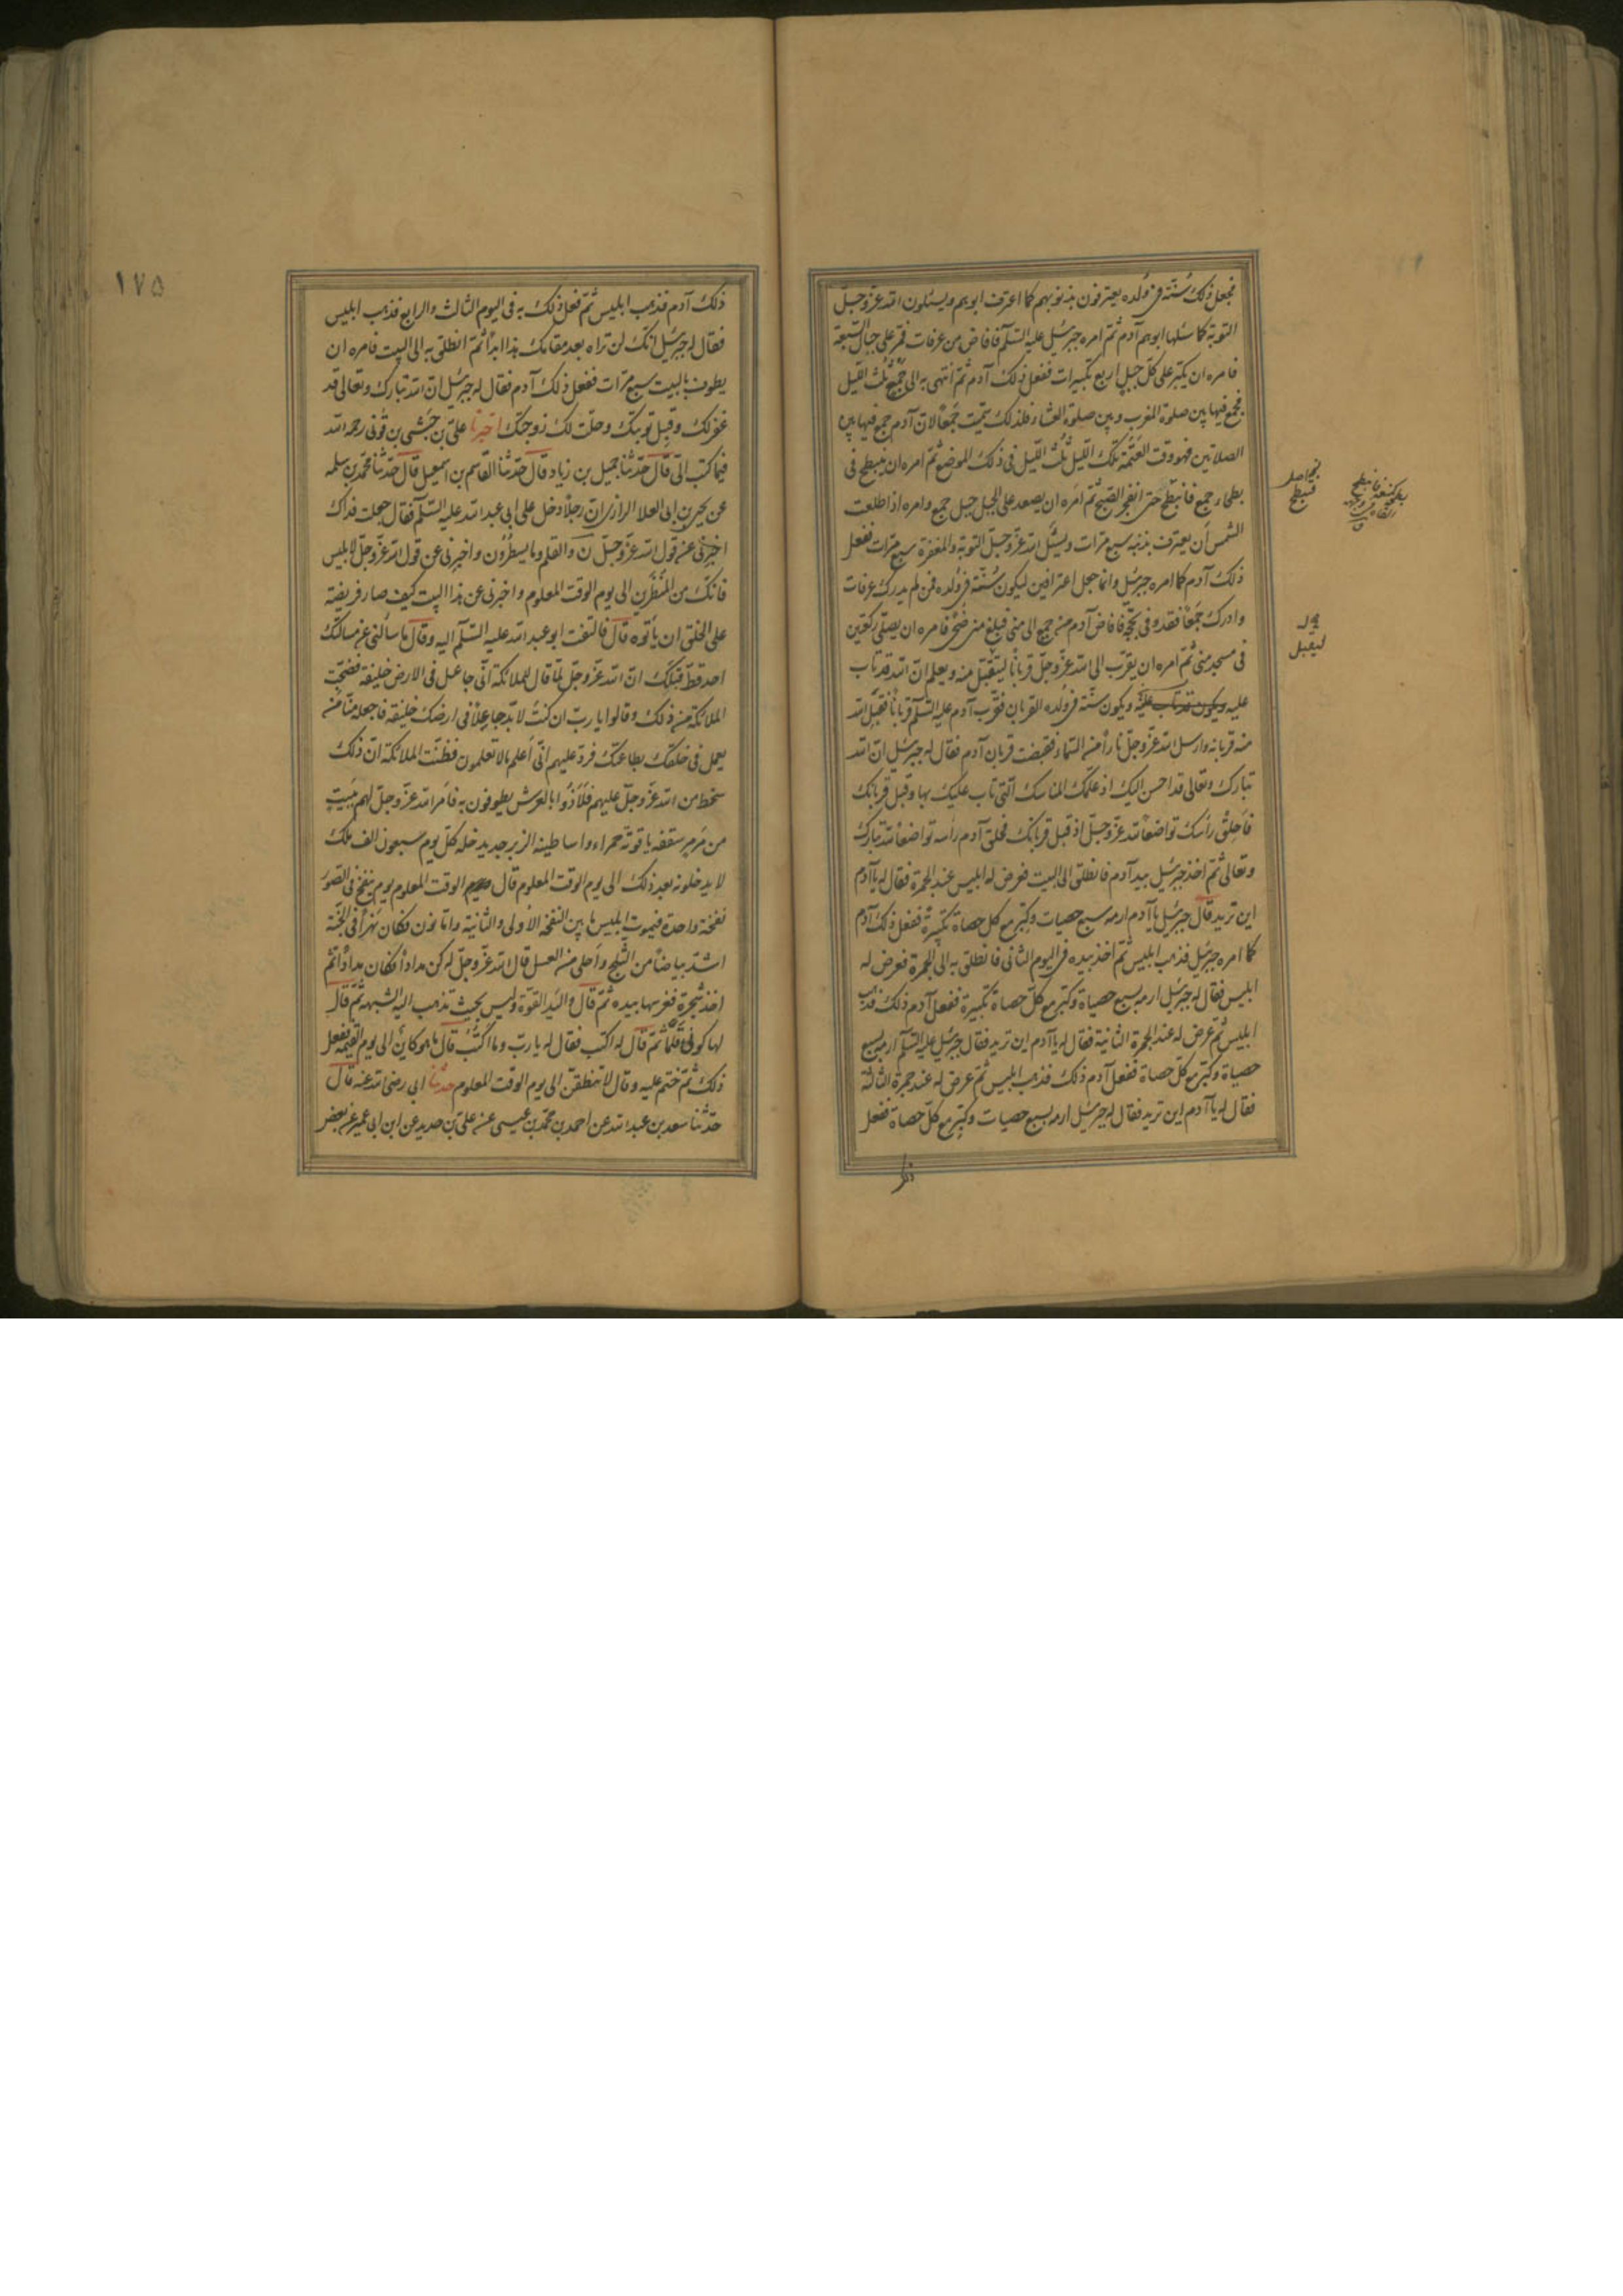 فجعل ذلك سُنّة فى وُلده يعترفون بذنوبهم كما اعترف ابوهم ويسئلون الله عزّ وجلّ
التوبة كما سئلها ابوهم آدم ثمّ امره جبرئيل عليه السّلم فافاض من عرفات فمرّ على جبال السّبعة
فامره ان يكبّر على كلّ جبل اربع تكبيرات ففعل ذلك آدم ثمّ انتهى به الى جَمْع ثُلُث الليل
فجمع فيها بين صلوة المغرب وبين صلوة العشاء فلذلك سمّيت جَمْعاً لانّ آدم جمع فيها بين
الصلاتين فهو وقت العَتَمة تلك الليل ثُلُث اللّيل فى ذلك الموضع ثمّ امره ان ينبطح فى
بطحاء جمع فانبطح حتى انفجر الصّبح ثمّ امَره ان يصعد على الجبل جبل جمع وامره اذا طلعت
الشمس أن يعترف بذنبه سبع مرّات ويسئل الله عزّ وجلّ التوبة والمغفرة سبع مرّات ففعل
ذلك آدم كما امره جبرئيل وانما جعل اعترافين ليكون سُنّة فى وُلده فمن لم يدرك عرفات
وادرك جَمْعاً فقد وفى بحجّه فافاض آدم من جمع الى منى فبلغ منى ضُحًى فامره ان يصلّى ركعتين
فى مسجد منى ثمّ امره ان يقرّب الى الله عزّ وجلّ قرباناً ليتقبّل منه ويعلم انّ الله قد تاب
عليه ويكون قد تاب عليه ويكون سنّة فى وُلده القربان فقرّب آدم عليه السّلم قرباناً فقبل الله
منه قربانه وارسل الله عزّ وجلّ ناراً من السّماء فقبضت قربان آدم فقال له جبرئيل انّ الله
تبارك وتعالى قد احسن اليك اذ علّمك المناسك الّتى تاب عليك بها وقبل قربانك
فاحلق رأسك تواضعاً لله عزّ وجلّ اذ قبل قربانك فحلق آدم رأسه تواضعاً لله تبارك
وتعالى ثمّ اخذ جبرئيل بيد آدم فانطلق الى البيت فعرض له ابليس عند الجمرة فقال له يا آدم
اين تريد قال جبرئيل يا آدم ارمه بسبع حصيات وكبّر مع كل حصاة تكبيرةً ففعل ذلك آدم
كما امره جبرئيل فذهب ابليس ثمّ اخذ بيده فى اليوم الثانى فانطلق به الى الجمرة فعرض له
ابليس فقال له جبرئيل ارمه بسبع حصياة وكبّر مع كلّ حصاة تكبيرة ففعل آدم ذلك فذهب
ابليس ثمّ عرض له عند الجمرة الثانية فقال له يا آدم اين تريد فقال جبرئيل عليه السّلم ارمه بسبع
حصياة وكبّر مع كلّ حصاة ففعل آدم ذلك فذهب ابليس ثمّ عرض له عند جمرة الثالثة
فقال له يا آدم اين تريد فقال له جبرئيل ارمه بسبع حصيات وكبّر مع كلّ حصاة ففعل
ليقبل
١٧٥
ذلك آدم فذهب ابليس ثمّ فعل ذلك به فى اليوم الثالث والرابع فذهب ابليس
فقال له جبرئيل انّك لن تراه بعد مقامك هذا ابداً ثمّ انطلق به الى البيت فامره ان
يطوف بالبيت سبع مرّات ففعل ذلك آدم فقال له جبرئيل انّ الله تبارك وتعالى قد
غفر لك وقبل توبتك وحلّت لك زوجتك اخبرنا علىّ بن حَبَشى بن قُونى رحمه الله
فيما كتب الىّ قال حدّثنا جميل بن زياد قال حدّثنا القاسم بن اسمعيل قال حدّثنا محمّد بن سلمه
عن يحيى بن ابى العلا الرازى انّ رجلاً دخل على ابى عبد الله عليه السّلم فقال جعلت فداك
اخبرنى عن قول الله عزّ وجلّ نٓ والقلم وما يسطُرون واخبرنى عن قول الله عزّ وجلّ لابليس
فانّك من المُنظَرين الى يوم الوقت المعلوم واخبرنى عن هذا البيت كيف صار فريضة
على الخلق ان يأتوه قال فالتفت ابو عبد الله عليه السّلم اليه وقال ما سألنى عن مسألتك
احد قطّ قَبلَك انّ الله عزّ وجلّ لمّا قال للملائكة انّى جاعل فى الارض خليفة فضجّت
الملائكة من ذلك وقالوا يا ربّ ان كنتَ لا بدّ جاعلاً فى ارضك خليفة فاجعله منّا من
يعمل فى خلقك بطاعتك فردّ عليهم انّى أعلم ما لا تعلمون فظنّت الملائكة انّ ذلك
سخط من الله عزّ وجلّ عليهم فلاذُوا بالعرش يطوفون به فأمر الله عزّ وجلّ لهم ببيت
من مَرمر سقفه ياقوتة حمراء واساطينه الزبرجد يدخله كلّ يوم سبعون الف ملك
لا يدخلونه بعد ذلك الى يوم الوقت المعلوم قال ويوم الوقت المعلوم يوم ينفخ فى الصّور
نفخة واحدة فيموت ابليس ما بين النفخة الأولى والثانية وامّا نون فكان نهراً فى الجنّة
اشدّ بياضاً من الثّلج وأحلى من العسل قال الله عزّ وجلّ له كن مداداً فكان مداداً ثمّ
اخذ شجرة فغرسها بيده ثمّ قال واليَد القوّة وليس بحيث تذهب اليه المشبهة ثمّ قال
لها كونى قَلَماً ثمّ قال له اكتب فقال له يا ربّ وما اكتُب قال ما هو كائن الى يوم القيمة ففعل
ذلك ثمّ ختم عليه وقال لا تنطقنّ الى يوم الوقت المعلوم حدّثنا ابى رضى الله عنه قال
حدّثنا سعد بن عبد الله عن احمد بن محمّد بن عيسى عن علىّ بن حديد عن ابن ابى عمير عن بعض